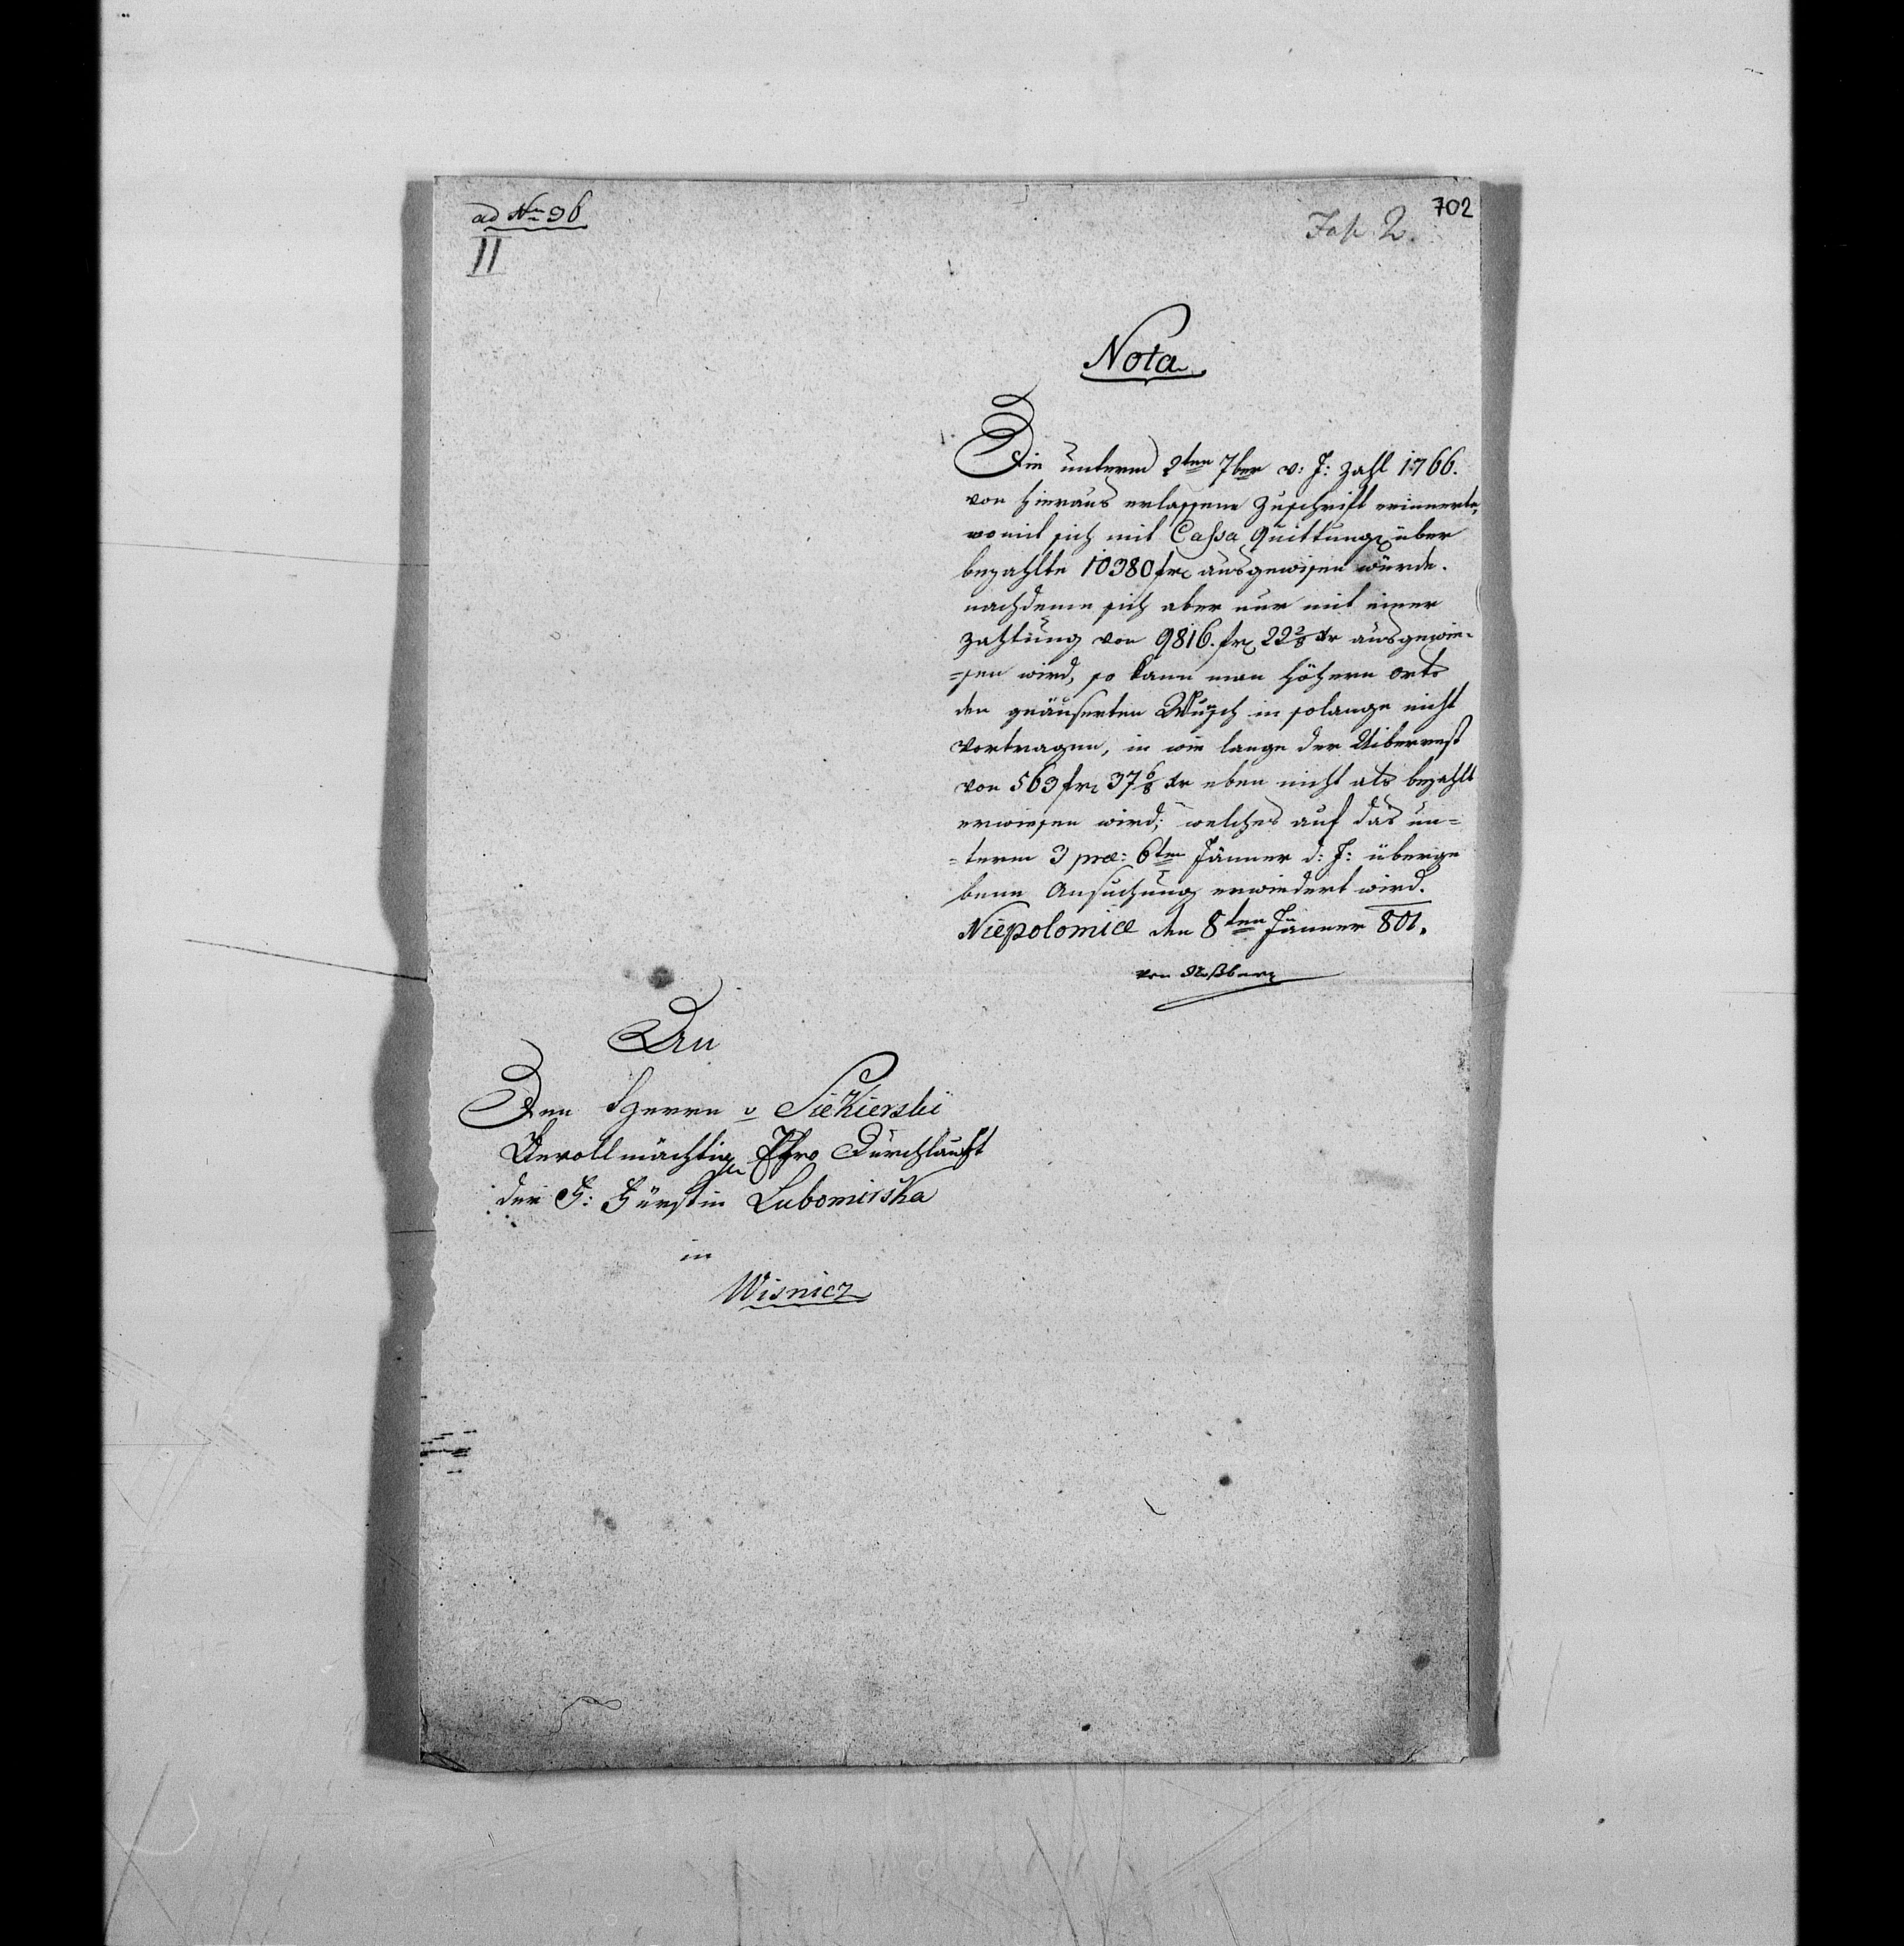 ad Nro 96
II
702
Fas. 2.
Nota
Die unterm 2ten 7ber v: J: Zahl 1766.
von hieraus erlassene Zuschrift erinnerte,
womit sich mit Cassa Quittung über
bezahlte 10380 fr ausgewisen würde.
nachdeme sich aber nur mit einer
Zahlung von 9816. fr 22 2/8 xr ausgewie-
=sen wird, so kann man höhern orts
den geäuserten Wunsch in solange nicht
vortragen, in wie lange der Uiberrest
von 563 fr 37 6/8 xr eben nicht als bezahlt
erwiesen wird; welches auf das un=
=term 3 præ: 6ten Jänner d: J: überge
bene Ansuchung erwiedert wird.
Niepolomice den 8ten Jänner 801.
An
Den Herrn v Siekierski
Bevollmächtigten Ihro Durchlaucht
der F: Fürstin Lubomirska
in
Wisnicz